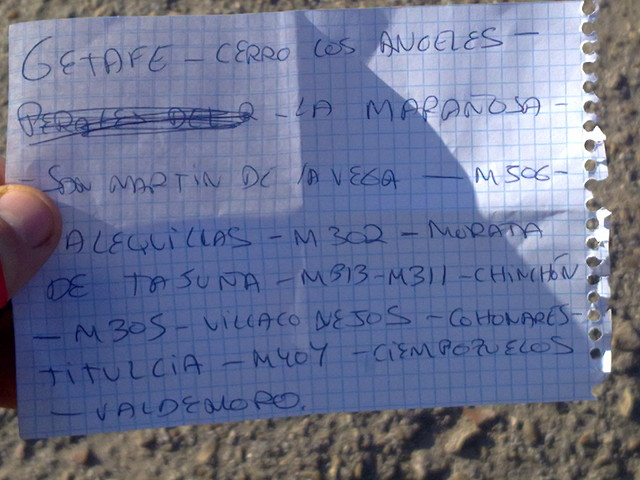 GETAFE - CERRO LOS ANGELES -
PERALES DEL R - LA MARAÑOSA -
- SAN MARTIN DE LA VEGA - M506 -
ALEQUILLAS - M302 - MORATA
DE TAJUÑA - M313 - M311 - CHINCHÓN
- M305 - VILLACONEJOS - COHONARES -
TITULCIA - M404 - CIEMPOZUELOS
- VALDEMORO.